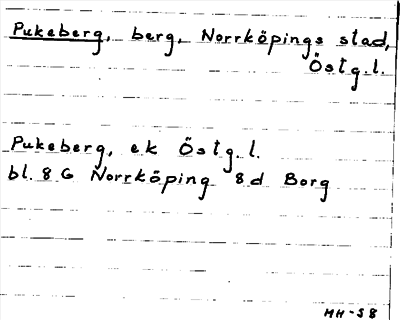 Pukeberg, berg, Norrköpings stad,
Östg.l.
Pukeberg, ek Östg.l.
bl. 8G Norrköping 8d Borg
MH-58